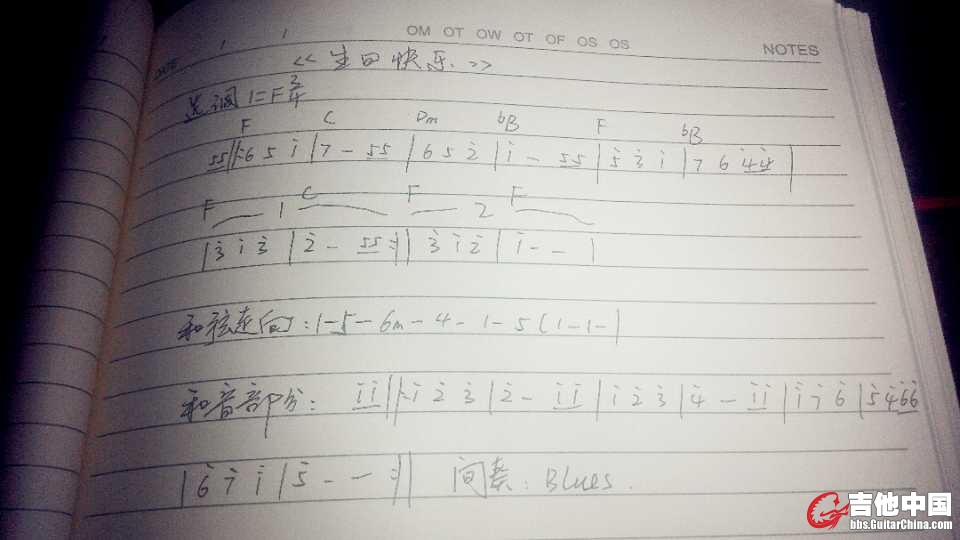 OM OT OW OT OF OS OS
NOTES
DATE / /
<<生日快乐.>>
选调 1=F 3/4
F C Dm bB F bB
55 ||: 6 5 i | 7 - 55 | 6 5 2̇ | i - 55 | 5̇ 3̇ i | 7 6 4̇4̇ |
F 1 C F 2 F
| 3̇ i 3̇ | 2̇ - 55 :|| 3̇ i 2̇ | i - - |
和弦走向: 1-5-6m-4-1-5(1-1-|
和音部分: i i ||: i 2̇ 3̇ | 2̇ - i i | i 2̇ 3̇ | 4̇ - i i | i 7̇ 6̇ | 5̇ 4̇ 6̇6̇
| 6̇ 7̇ i | 5̇ - - :|| 间奏: Blues.
吉他中国
bbs.GuitarChina.com